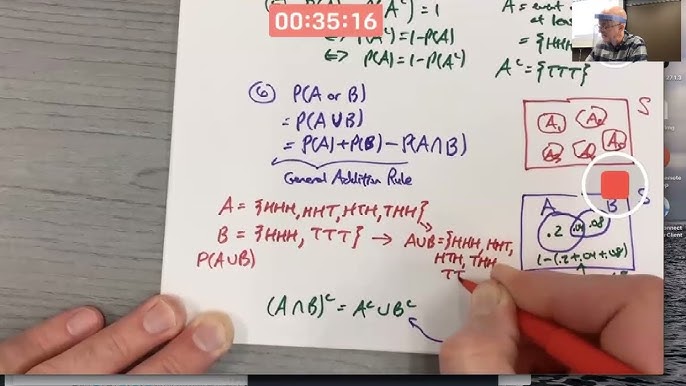 00:35:16
P(Aᶜ)=1
⇔ P(Aᶜ)=1-P(A)
⇔ P(A)=1-P(Aᶜ)
A = event
at least
= {HHH
Aᶜ={TTT}
⑥ P(A or B)
= P(A∪B)
= P(A)+P(B)-P(A∩B)
General Addition Rule
A = {HHH, HHT, HTH, THH}
B = {HHH, TTT} → A∪B={HHH, HHT,
HTH, THH
TT
P(A∪B)
(A∩B)ᶜ = Aᶜ∪Bᶜ
S
A₁
S
A B
.2 .04 .08
1-(.2+.04+.08)